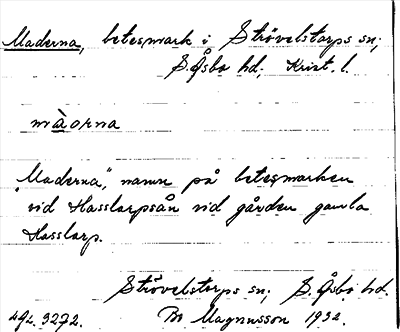 Maderna, betesmark i Strövelstorps sn;
S. Åsbo hd; Krist. l.
màorna
"Maderna", namn på betesmarken
vid Hasslarpsån vid gården gamla
Hasslarp.
Strövelstorps sn; S. Åsbo hd.
Magnusson 1932